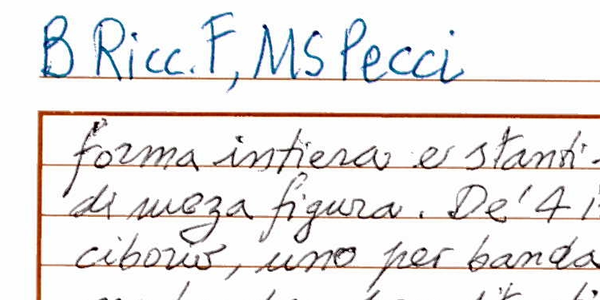 B Ricc. F, MS Pecci
forma intiera e stanti-
di meza figura. De' 4 i
ciborio, uno per banda